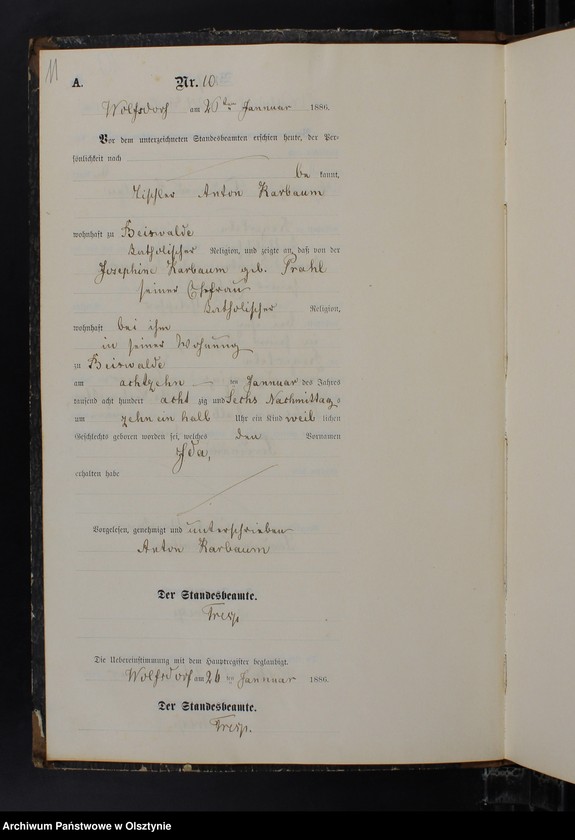 11
A. Nr. 10.
Wolfsdorf am 26ten Januar 1886.
Vor dem unterzeichneten Standesbeamten erschien heute, der Per-
sönlichkeit nach
be kannt,
Tischler Anton Karbaum
wohnhaft zu Beiswalde
katholischer Religion, und zeigte an, daß von der
Josephine Karbaum geb. Prahl
seiner Ehefrau
katholischer Religion,
wohnhaft bei ihm
in seiner Wohnung
zu Beiswalde
am achtzehn ten Januar des Jahres
tausend acht hundert acht zig und Sechs Nachmittags
um zehn ein halb Uhr ein Kind weib lichen
Geschlechts geboren worden sei, welches den Vornamen
Ida,
erhalten habe
Vorgelesen, genehmigt und unterschrieben
Anton Karbaum
Der Standesbeamte.
Die Uebereinstimmung mit dem Hauptregister beglaubigt.
Wolfsdorf am 26ten Januar 1886.
Der Standesbeamte.
Archiwum Państwowe w Olsztynie